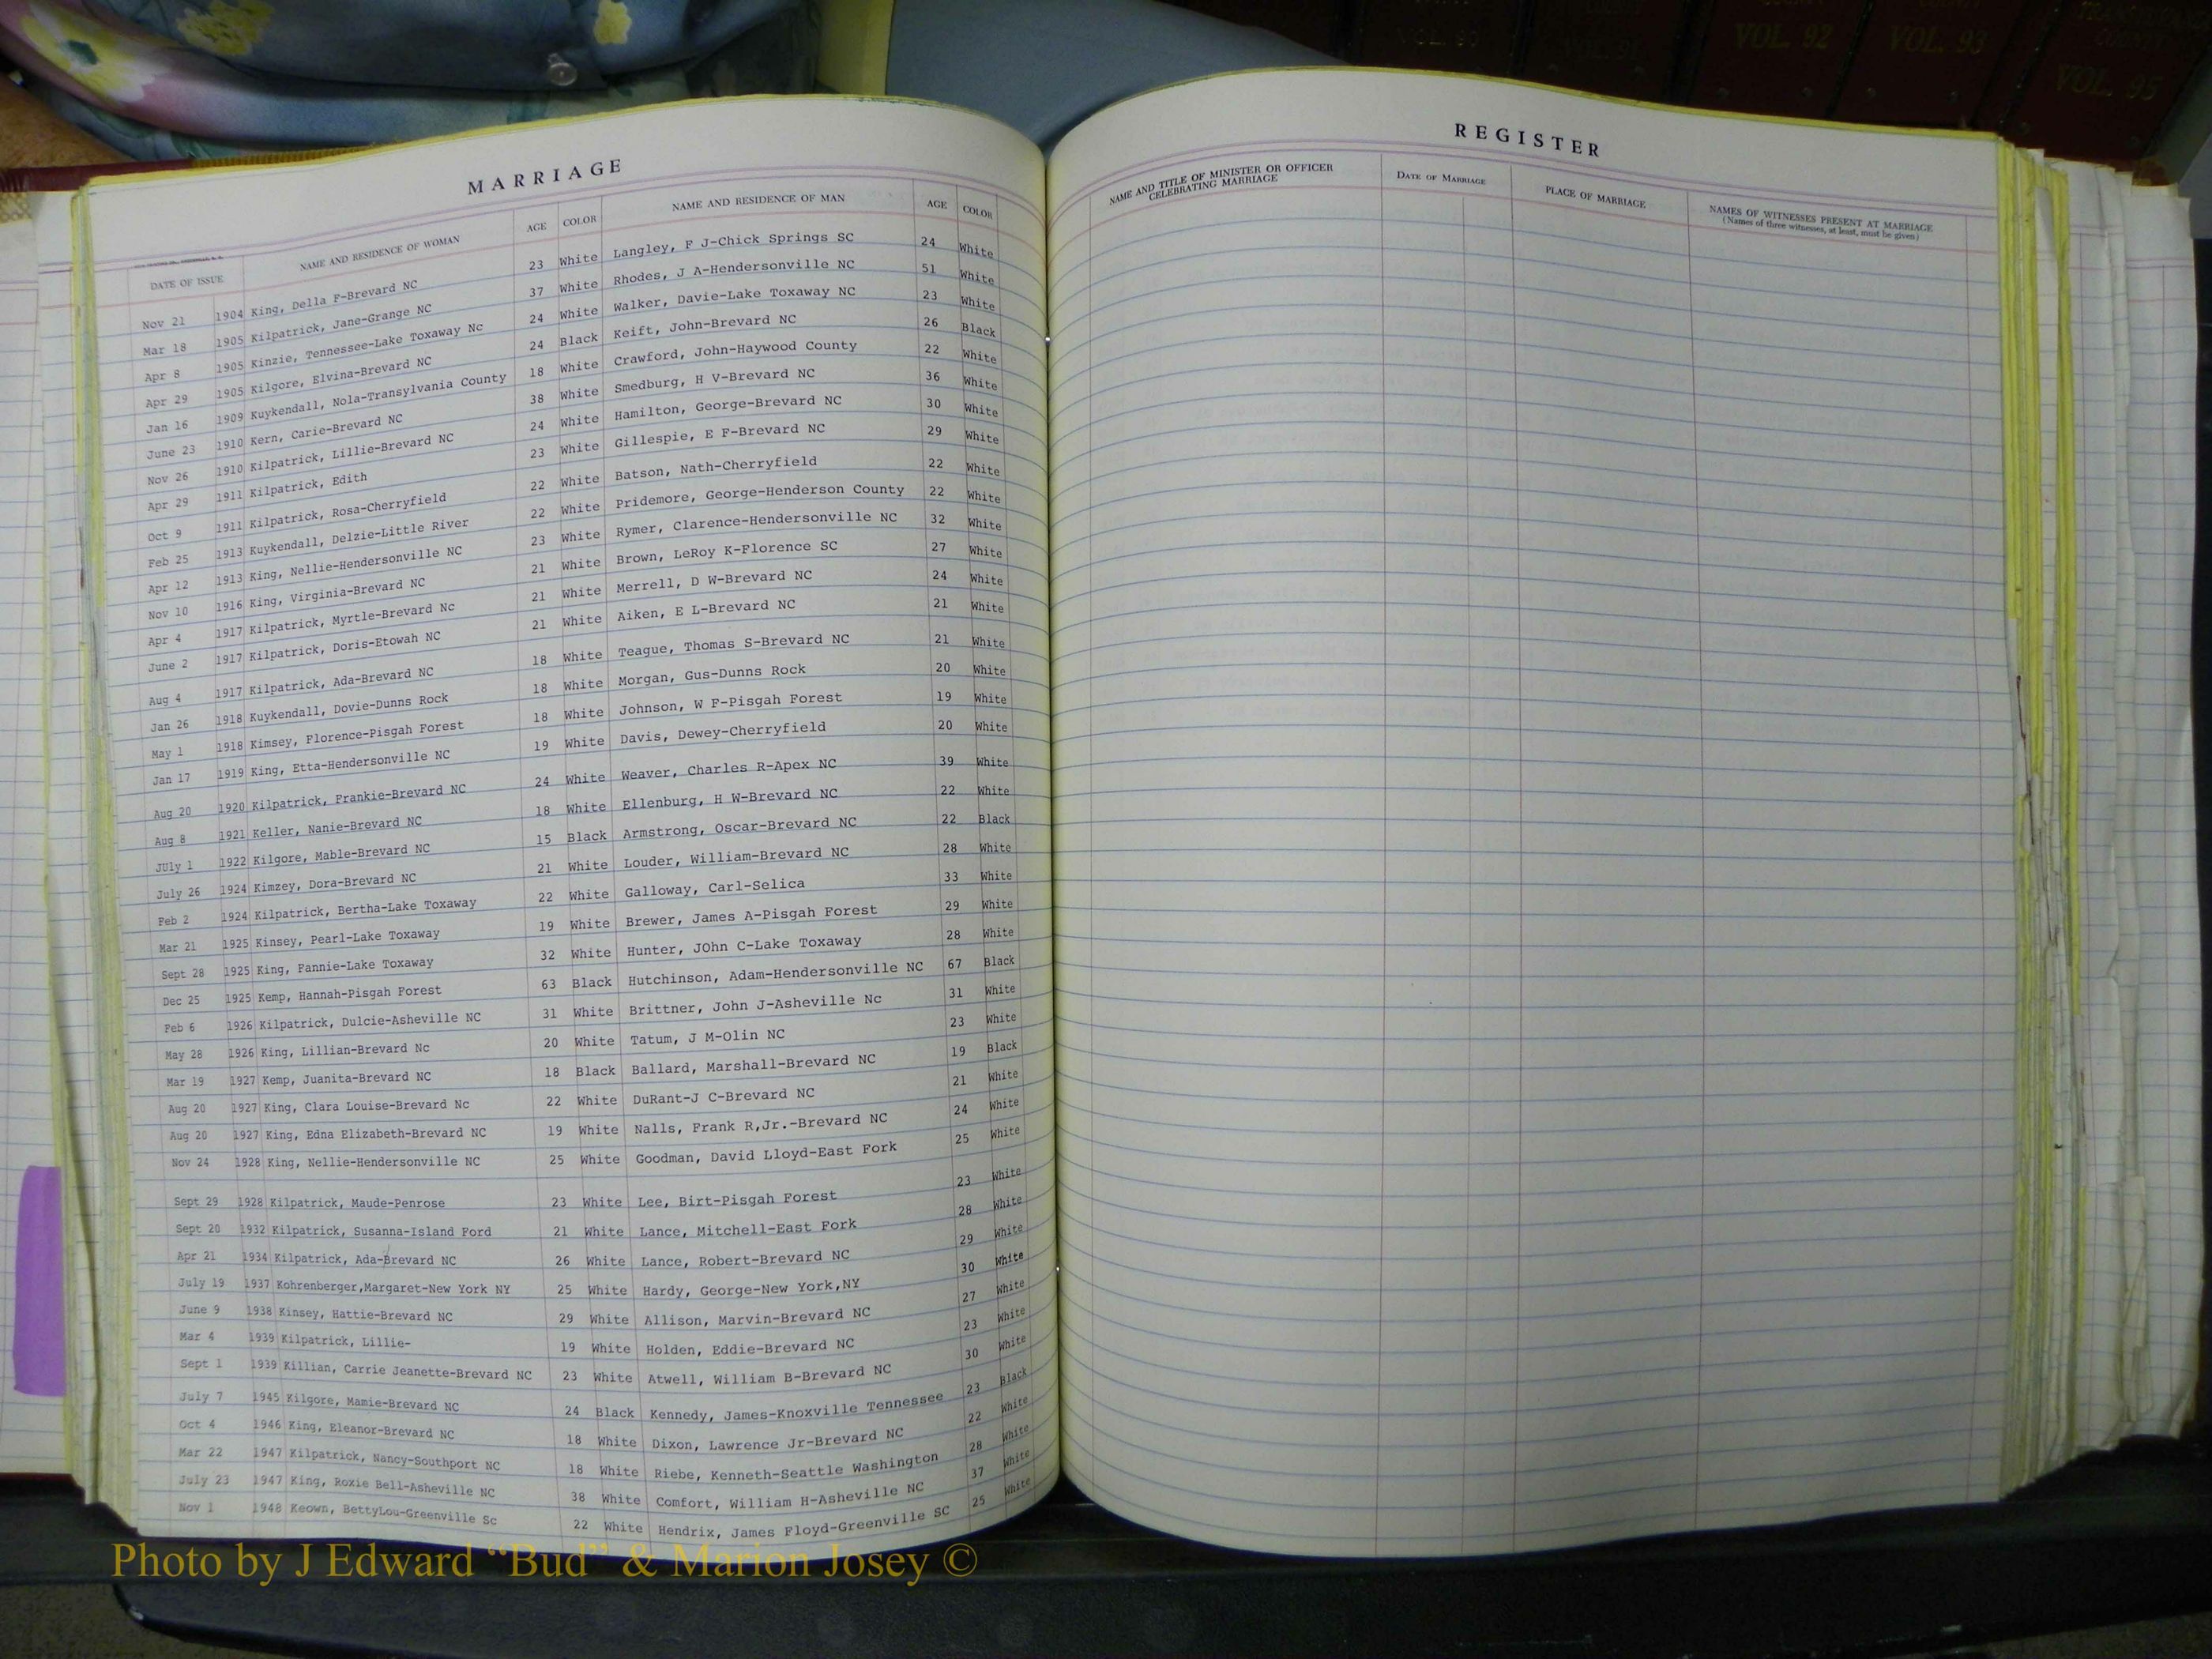 VOL. 92
VOL. 93
VOL. 95
MARRIAGE
DATE OF ISSUE NAME AND RESIDENCE OF WOMAN AGE COLOR NAME AND RESIDENCE OF MAN AGE COLOR
Nov 21 1904 King, Della F-Brevard NC 23 White Langley, F J-Chick Springs SC 24 White
Mar 18 1905 Kilpatrick, Jane-Grange NC 37 White Rhodes, J A-Hendersonville NC 51 White
Apr 8 1905 Kinzie, Tennessee-Lake Toxaway Nc 24 White Walker, Davie-Lake Toxaway NC 23 White
Apr 29 1905 Kilgore, Elvina-Brevard NC 24 Black Keift, John-Brevard NC 26 Black
Jan 16 1909 Kuykendall, Nola-Transylvania County 18 White Crawford, John-Haywood County 22 White
June 23 1910 Kern, Carie-Brevard NC 38 White Smedburg, H V-Brevard NC 36 White
Nov 26 1910 Kilpatrick, Lillie-Brevard NC 24 White Hamilton, George-Brevard NC 30 White
Apr 29 1911 Kilpatrick, Edith 23 White Gillespie, E F-Brevard NC 29 White
Oct 9 1911 Kilpatrick, Rosa-Cherryfield 22 White Batson, Nath-Cherryfield 22 White
Feb 25 1913 Kuykendall, Delzie-Little River 22 White Pridemore, George-Henderson County 22 White
Apr 12 1913 King, Nellie-Hendersonville NC 23 White Rymer, Clarence-Hendersonville NC 32 White
Nov 10 1916 King, Virginia-Brevard NC 21 White Brown, LeRoy K-Florence SC 27 White
Apr 4 1917 Kilpatrick, Myrtle-Brevard Nc 21 White Merrell, D W-Brevard NC 24 White
June 2 1917 Kilpatrick, Doris-Etowah NC 21 White Aiken, E L-Brevard NC 21 White
Aug 4 1917 Kilpatrick, Ada-Brevard NC 18 White Teague, Thomas S-Brevard NC 21 White
Jan 26 1918 Kuykendall, Dovie-Dunns Rock 18 White Morgan, Gus-Dunns Rock 20 White
May 1 1918 Kimsey, Florence-Pisgah Forest 18 White Johnson, W F-Pisgah Forest 19 White
Jan 17 1919 King, Etta-Hendersonville NC 19 White Davis, Dewey-Cherryfield 20 White
Aug 20 1920 Kilpatrick, Frankie-Brevard NC 24 White Weaver, Charles R-Apex NC 39 White
Aug 8 1921 Keller, Nanie-Brevard NC 18 White Ellenburg, H W-Brevard NC 22 White
JUly 1 1922 Kilgore, Mable-Brevard NC 15 Black Armstrong, Oscar-Brevard NC 22 Black
July 26 1924 Kimzey, Dora-Brevard NC 21 White Louder, William-Brevard NC 28 White
Feb 2 1924 Kilpatrick, Bertha-Lake Toxaway 22 White Galloway, Carl-Selica 33 White
Mar 21 1925 Kinsey, Pearl-Lake Toxaway 19 White Brewer, James A-Pisgah Forest 29 White
Sept 28 1925 King, Fannie-Lake Toxaway 32 White Hunter, JOhn C-Lake Toxaway 28 White
Dec 25 1925 Kemp, Hannah-Pisgah Forest 63 Black Hutchinson, Adam-Hendersonville NC 67 Black
Feb 6 1926 Kilpatrick, Dulcie-Asheville NC 31 White Brittner, John J-Asheville Nc 31 White
May 28 1926 King, Lillian-Brevard Nc 20 White Tatum, J M-Olin NC 23 White
Mar 19 1927 Kemp, Juanita-Brevard NC 18 Black Ballard, Marshall-Brevard NC 19 Black
Aug 20 1927 King, Clara Louise-Brevard Nc 22 White DuRant-J C-Brevard NC 21 White
Aug 20 1927 King, Edna Elizabeth-Brevard NC 19 White Nalls, Frank R,Jr.-Brevard NC 24 White
Nov 24 1928 King, Nellie-Hendersonville NC 25 White Goodman, David Lloyd-East Fork 25 White
Sept 29 1928 Kilpatrick, Maude-Penrose 23 White Lee, Birt-Pisgah Forest 23 White
Sept 20 1932 Kilpatrick, Susanna-Island Ford 21 White Lance, Mitchell-East Fork 28 White
Apr 21 1934 Kilpatrick, Ada-Brevard NC 26 White Lance, Robert-Brevard NC 29 White
July 19 1937 Kohrenberger,Margaret-New York NY 25 White Hardy, George-New York,NY 30 White
June 9 1938 Kinsey, Hattie-Brevard NC 29 White Allison, Marvin-Brevard NC 27 White
Mar 4 1939 Kilpatrick, Lillie- 19 White Holden, Eddie-Brevard NC 23 White
Sept 1 1939 Killian, Carrie Jeanette-Brevard NC 23 White Atwell, William B-Brevard NC 30 White
July 7 1945 Kilgore, Mamie-Brevard NC 24 Black Kennedy, James-Knoxville Tennessee 23 Black
Oct 4 1946 King, Eleanor-Brevard NC 18 White Dixon, Lawrence Jr-Brevard NC 22 White
Mar 22 1947 Kilpatrick, Nancy-Southport NC 18 White Riebe, Kenneth-Seattle Washington 28 White
July 23 1947 King, Roxie Bell-Asheville NC 38 White Comfort, William H-Asheville NC 37 White
Nov 1 1948 Keown, BettyLou-Greenville Sc 22 White Hendrix, James Floyd-Greenville SC 25 White
REGISTER
NAME AND TITLE OF MINISTER OR OFFICER CELEBRATING MARRIAGE DATE OF MARRIAGE PLACE OF MARRIAGE NAMES OF WITNESSES PRESENT AT MARRIAGE
(Names of three witnesses, at least, must be given)
Photo by J Edward “Bud” & Marion Josey ©